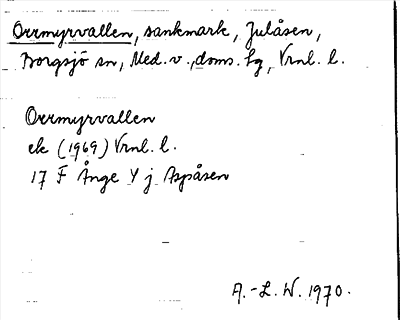 Orrmyrvallen, sankmark, Julåsen,
Borgsjö sn, Med. v., doms. hg, Vrnl. l.
Orrmyrvallen
ek (1969) Vrnl. l.
17 F Ånge Y j Aspåsen
A.-L. W. 1970.